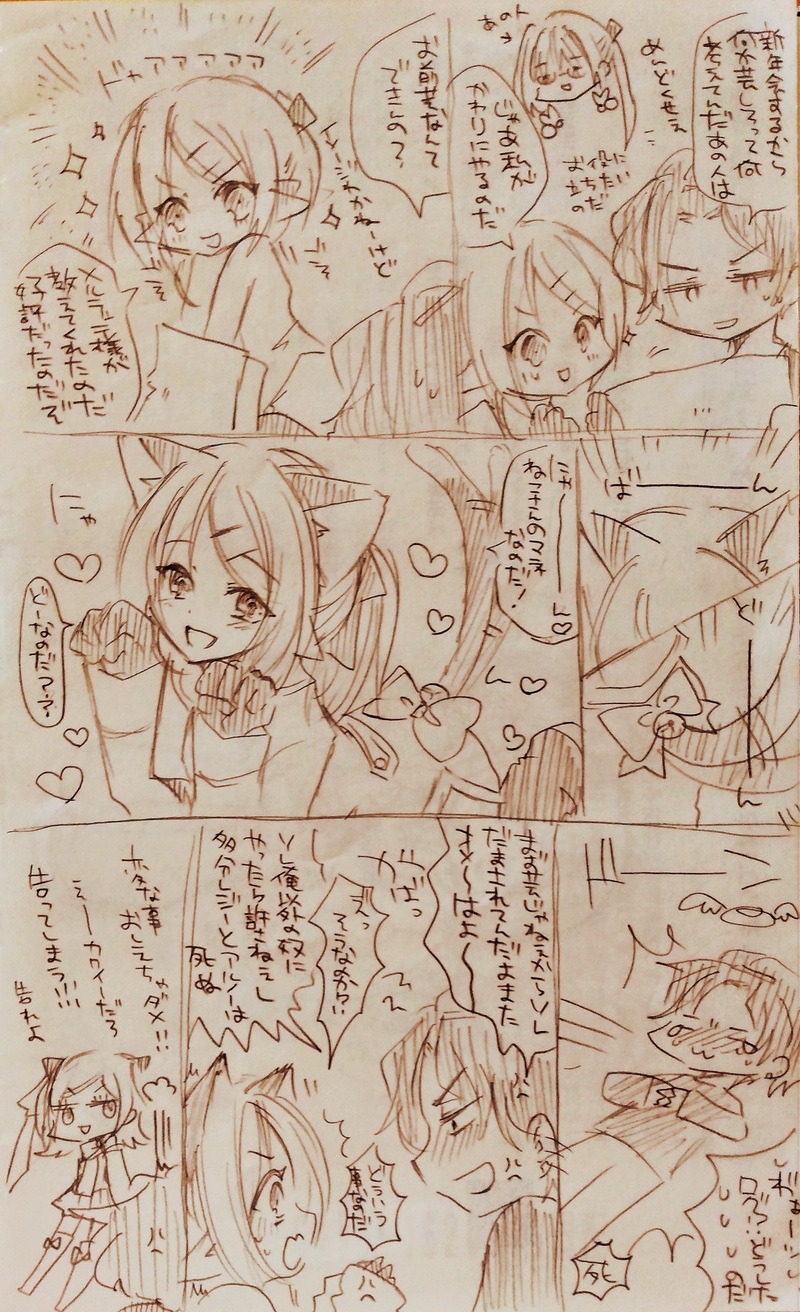 新年会するから
何か芸しろって何
考えてんだあの人は
めんどくせえ
あの人→
じゃあ私が
かわりにやるのだ
役にたち
たいだ
お前芸なんて
できんの?
イメージわかねーけど
ドャァァァァァ
メルラッテ様が
教えてくれたのだ
好評だったのだぞ
ばーん
どーん
にゃーーん♡
ねこさんのマネ
なのだ!
にゃ
どーなのだ??
ドーーン
死
まず芸じゃねえからソレ
だまされてんだよまた
オメーはよー
がばっ
えっ
そうなのか!?
ソレ俺以外の奴に
やったら許さねえし
多分レジーとアルノーは
死ぬ
どういう
事なのだ
変な事
おしえちゃダメ!!
えーカワイーだろ
告ってしまう!!!
告れよ